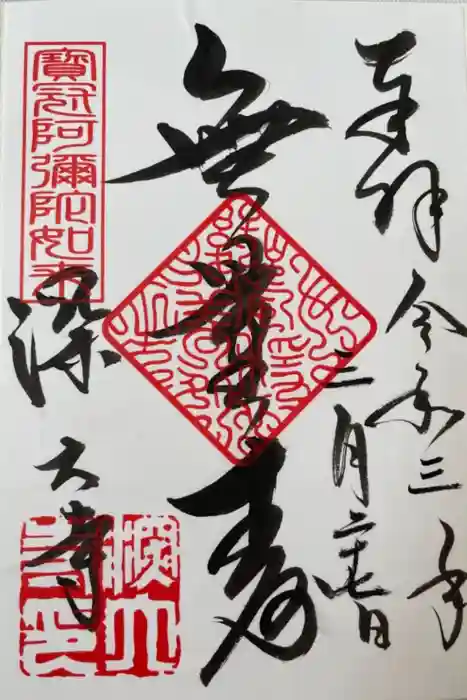 奉拝
令和三年
三月二十七日
無量寿
寶冠阿彌陀如来
深大寺
深大寺印